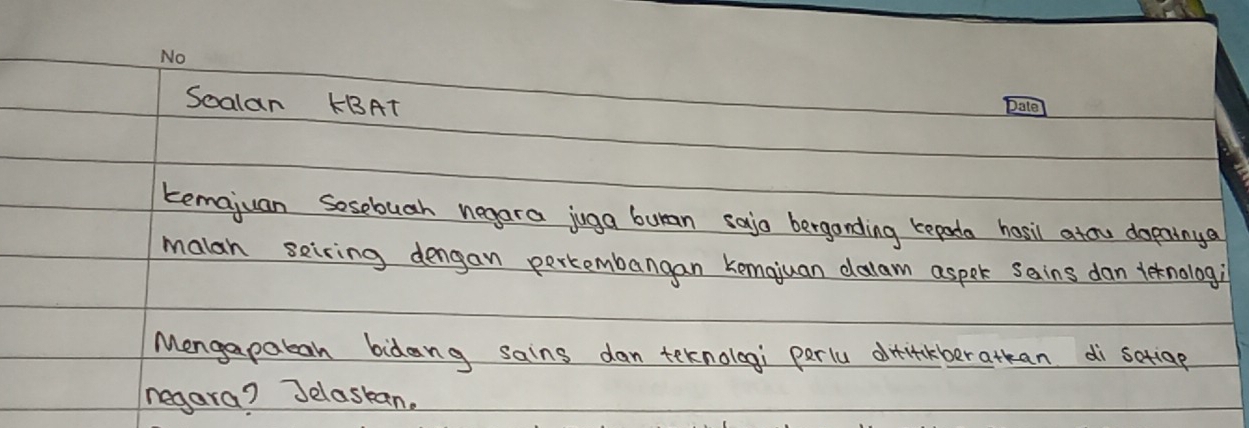 No
Date
Soalan KBAT
Kemajuan sesebuah negara juga bukan saja berganding kepada hasil atau dapatnya
malah seiring dengan perkembangan kemajuan dalam aspek sains dan teknologi
Mengapakah bidang sains dan teknologi perlu dititikberatkan di setiap
negara? Jelaskan.